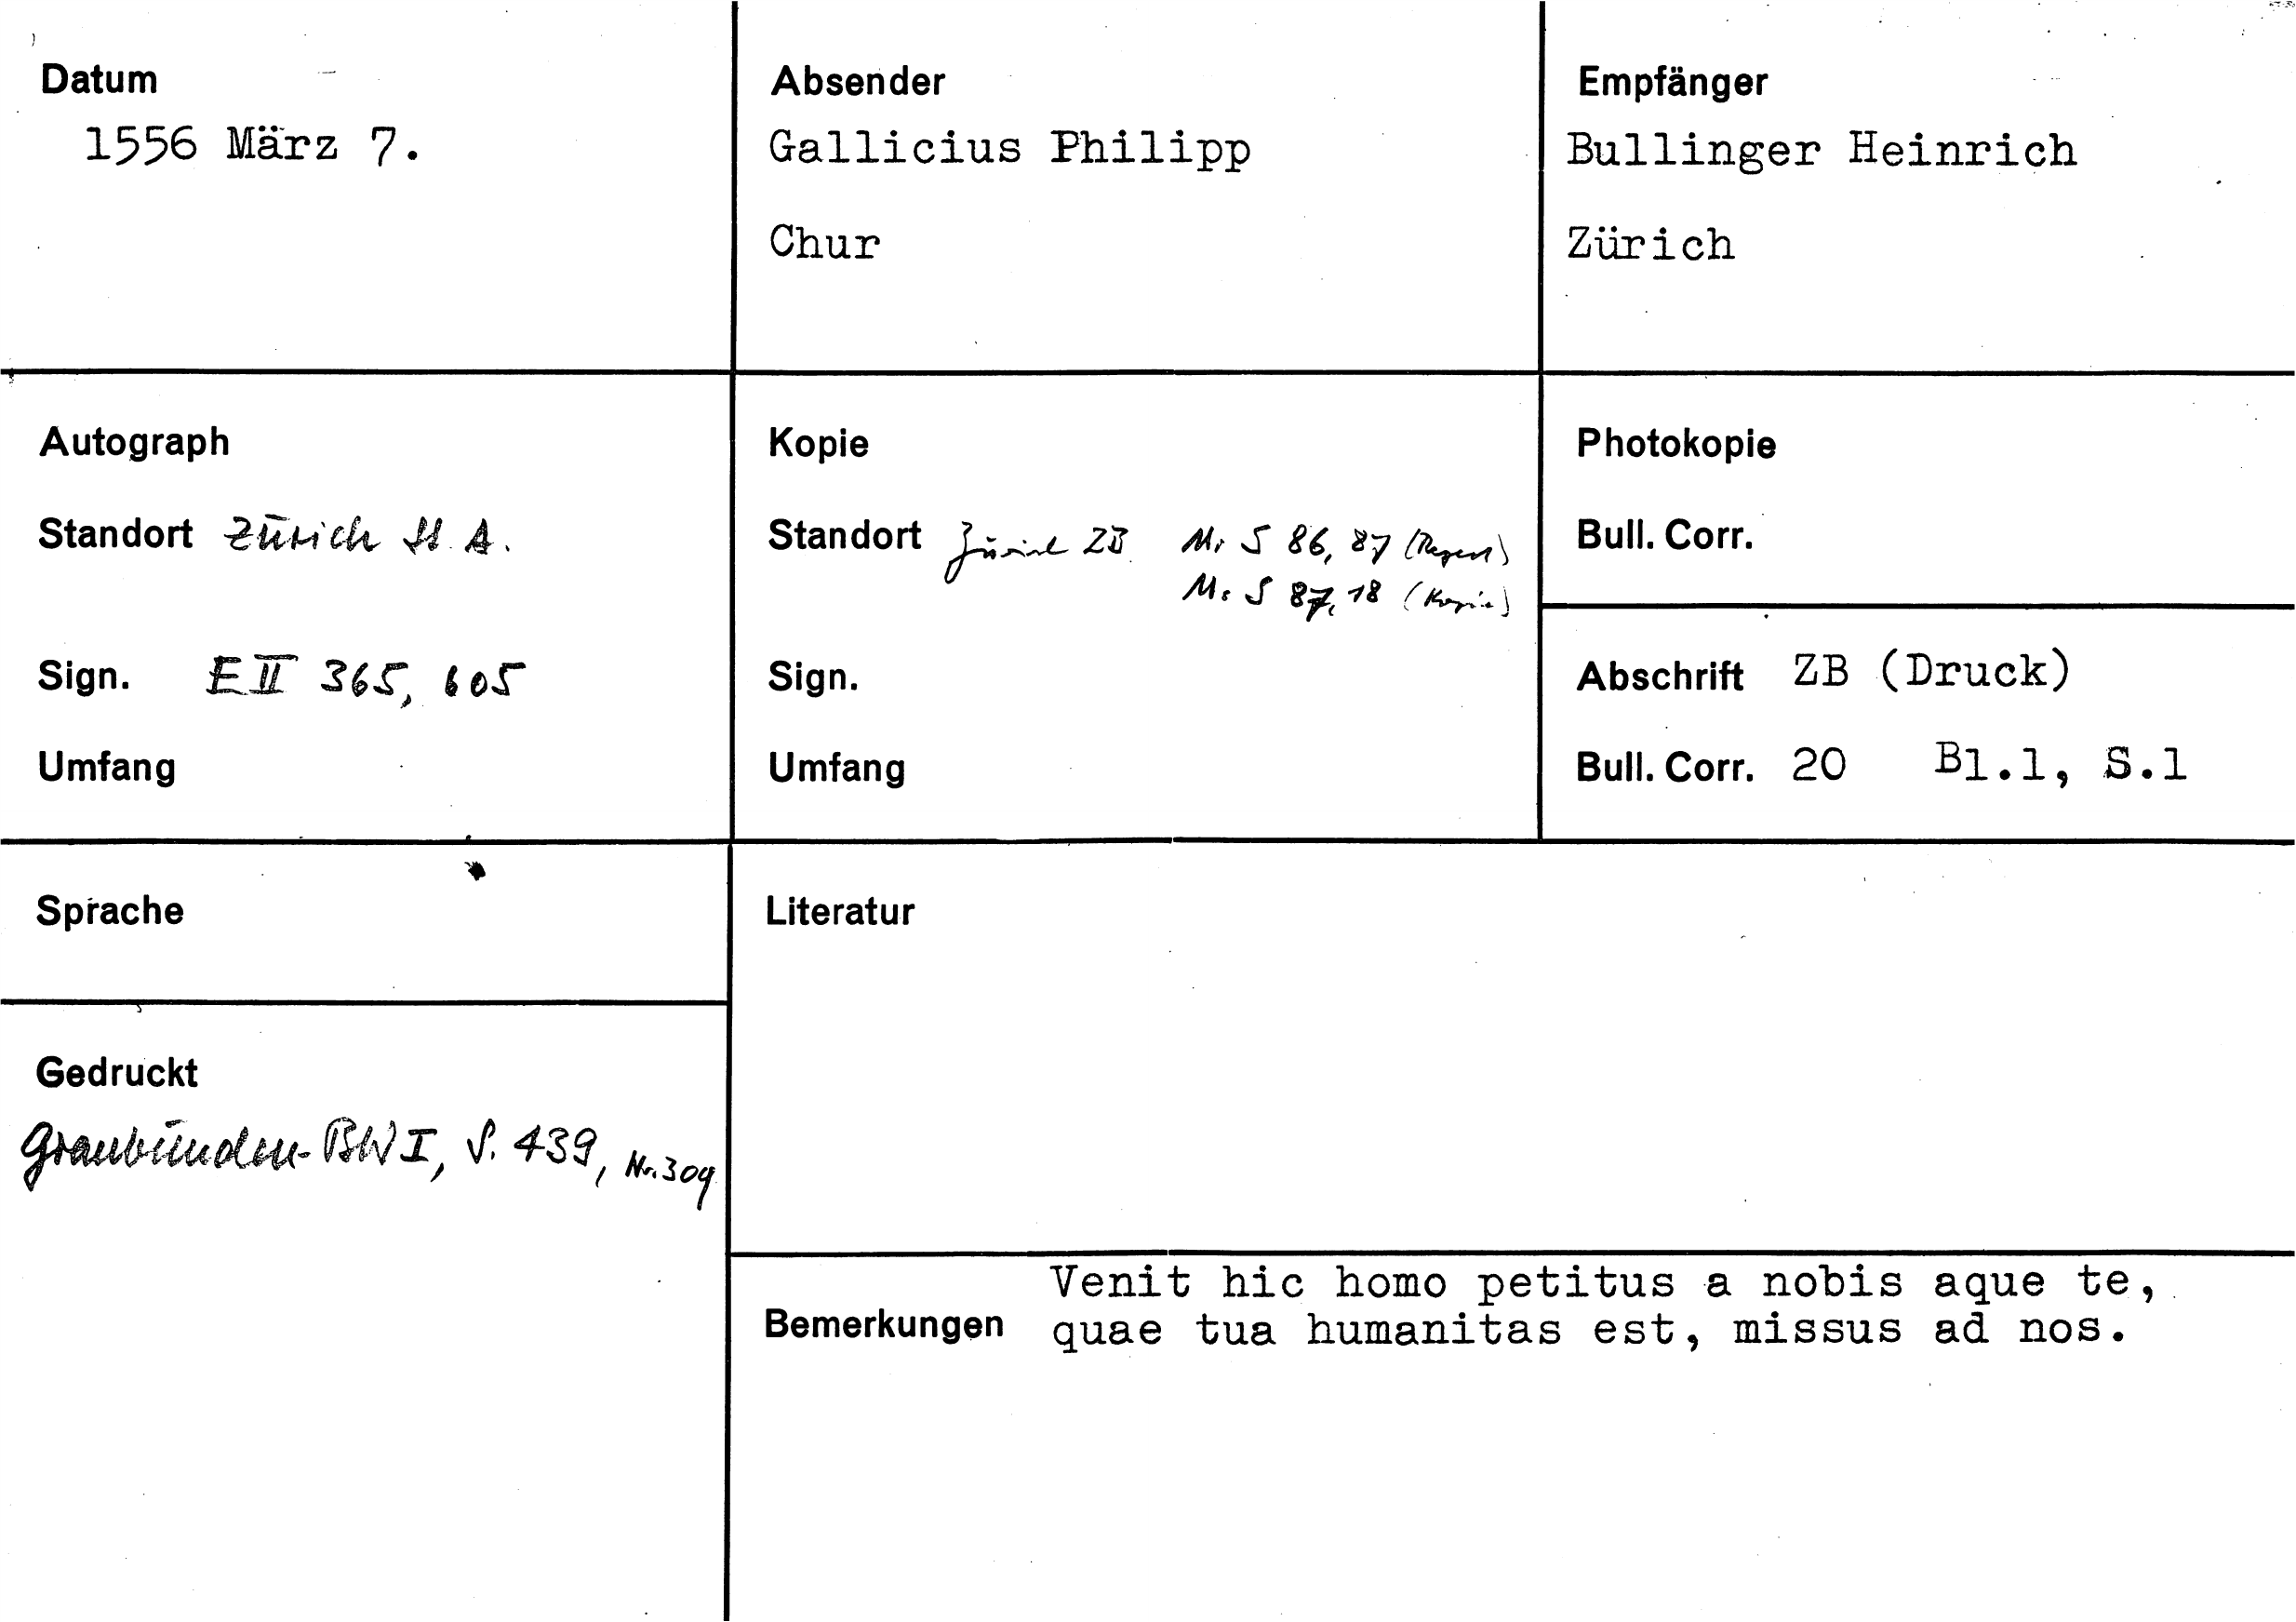 Datum
1556 März 7.
Absender
Gallicius Philipp
Chur
Empfänger
Bullinger Heinrich
Zürich
Autograph
Standort Zürich St. A.
Sign. E II 365, 605
Umfang
Kopie
Standort Zürich ZB Ms S 86, 87 (Regest)
Ms S 87, 18 (Kopie)
Sign.
Umfang
Photokopie
Bull. Corr.
Abschrift ZB (Druck)
Bull. Corr. 20 Bl.1, S.1
Sprache
Gedruckt
Graubünden-BW I, S. 439, Nr. 309
Literatur
Bemerkungen
Venit hic homo petitus a nobis aque te,
quae tua humanitas est, missus ad nos.